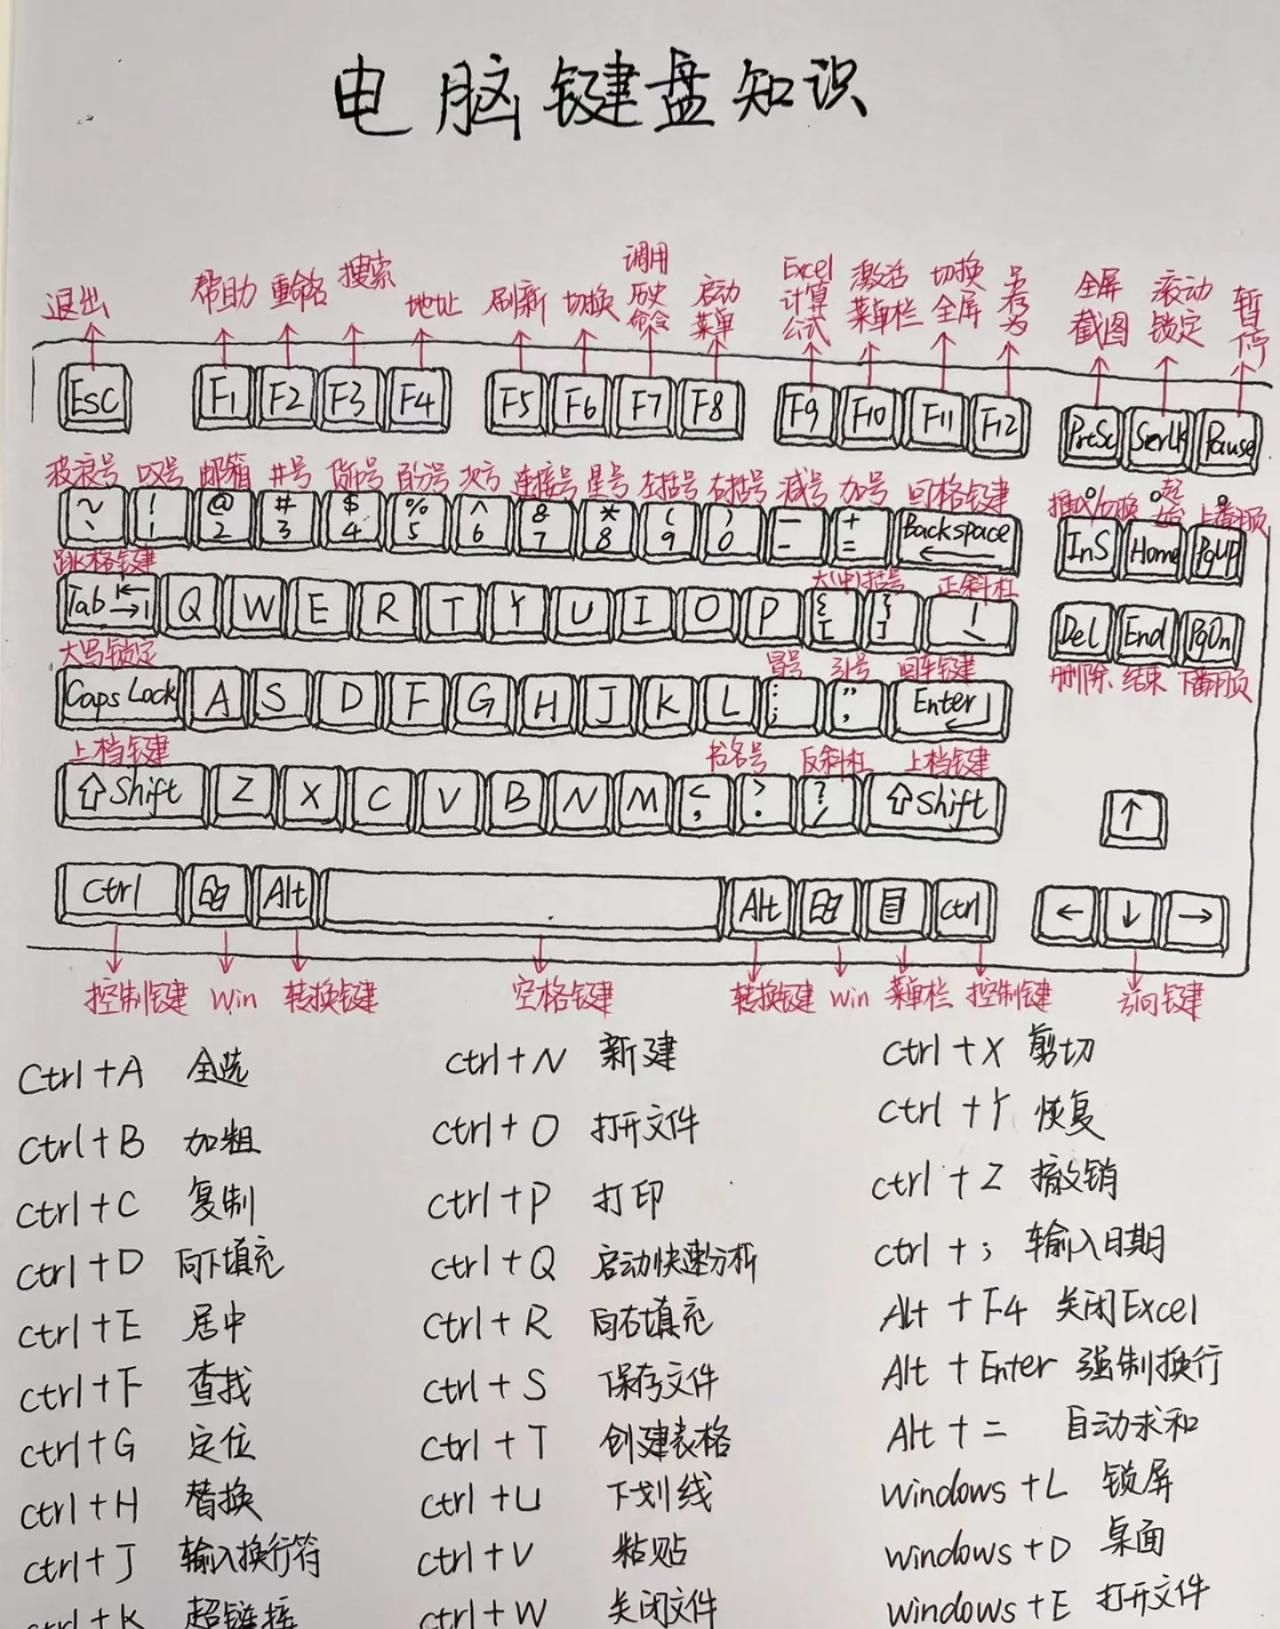 电脑键盘知识
退出 帮助 重命名 搜索 地址 刷新 切换 调用历史命令 启动菜单 Excel计算公式 激活菜单栏 切换全屏 另存为 全屏截图 滚动锁定 暂停
Esc F1 F2 F3 F4 F5 F6 F7 F8 F9 F10 F11 F12 PrtSc ScrLK Pause
波浪号 叹号 邮箱 #号 货币号 百分号 次方 连接号 星号 左括号 右括号 减号 加号 回格键 插入/切换 起始 上翻页
~ ` ! 1 @ 2 # 3 $ 4 % 5 ^ 6 & 7 * 8 ( 9 ) 0 — - + = Backspace ← InS Home PgUp
跳格键 大(中)括号 正斜杠
Tab Q W E R T Y U I O P { [ } ] | \ Del End PgDn
大写锁定 冒号 引号 回车键 删除 结束 下翻页
Caps Lock A S D F G H J K L : ; " , Enter
上档键 书名号 反斜杠 上档键
⇧Shift Z X C V B N M < , > . ? / ⇧Shift ↑
Ctrl Alt Alt ctrl ← ↓ →
控制键 Win 转换键 空格键 转换键 Win 菜单栏 控制键 方向键
Ctrl+A 全选 ctrl+N 新建 ctrl+X 剪切
ctrl+B 加粗 ctrl+O 打开文件 ctrl+Y 恢复
ctrl+C 复制 ctrl+P 打印 ctrl+Z 撤销
ctrl+D 向下填充 ctrl+Q 启动快速分析 ctrl+; 输入日期
ctrl+E 居中 ctrl+R 向右填充 Alt+F4 关闭Excel
ctrl+F 查找 ctrl+S 保存文件 Alt+Enter 强制换行
ctrl+G 定位 ctrl+T 创建表格 Alt+= 自动求和
ctrl+H 替换 ctrl+U 下划线 windows+L 锁屏
ctrl+J 输入换行符 ctrl+V 粘贴 windows+D 桌面
ctrl+K 超链接 ctrl+W 关闭文件 windows+E 打开文件